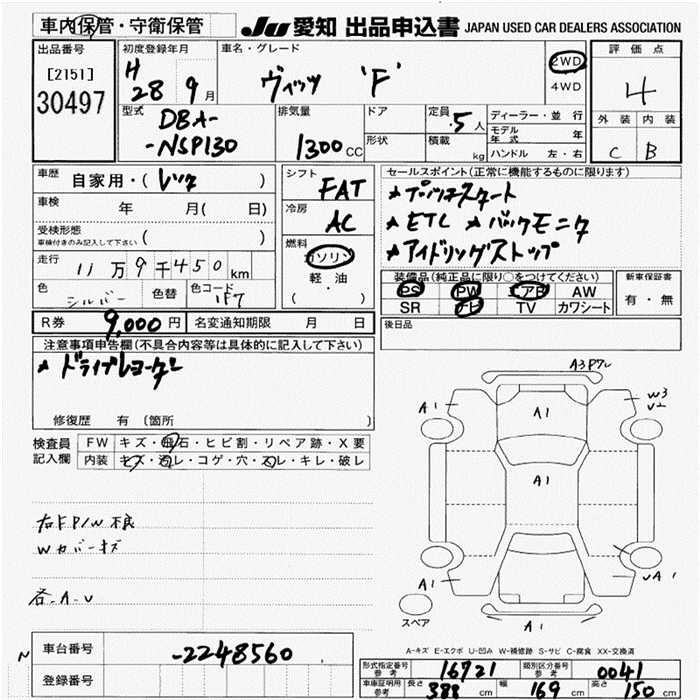 車内保管・守衛保管
JU 愛知 出品申込書 JAPAN USED CAR DEALERS ASSOCIATION
出品番号
[2151]
30497
初度登録年月
H 28 9月
車名・グレード
ヴィッツ 'F'
2WD
4WD
評価点
4
外装 内装
C B
型式
DBA-
-NSP130
排気量
1300CC
ドア
形状
定員 5人
積載 kg
ディーラー・並行
モデル年式
ハンドル 左・右
車歴 自家用・(レンタ)
車検 年 月( 日)
受検形態
車検付きのみ記入して下さい ( )
走行 11万9千450km
色 シルバー 色替 色コード 1F7
シフト
FAT
冷房
AC
燃料
ガソリン
軽・油
( )
セールスポイント(正常に機能するものに限ります)
★プッシュスタート
★ETC ★バックモニタ
★アイドリングストップ
装備品(純正品に限り○をつけてください)
PS PW エアB AW
SR ナビ TV カワシート
新車保証書
有・無
R券 9,000円 名変通知期限 月 日
後日品
注意事項申告欄(不具合内容等は具体的に記入して下さい)
★ドライブレコーダー
修復歴 有 (箇所 )
検査員記入欄
FW キズ・飛石・ヒビ割・リペア跡・X要
内装 キズ・汚レ・コゲ・穴・スレ・キレ・破レ
右F P/W不良
Wカバーキズ
各.A.U
A3PアL
A1
A1
W3
U2
A1
A1
UA1
A1
スペア
A-キズ E-エクボ U-凹み W-補修跡 S-サビ C-腐食 XX-交換済
N
車台番号 -2248560
登録番号
形式指定番号参考 16721 類別区分番号参考 0041
車庫証明用参考 長さ 388cm 幅 169cm 高さ 150cm